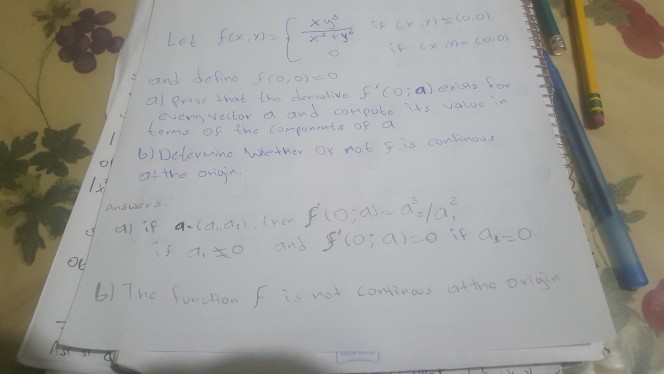 Let f(x,y) = { xy³ / x³+y⁶ if (x,y) ≠ (0,0)
0 if (x,y) = (0,0)
and define f(0,0)=0
a) prove that the derivative f'(0;a) exists for
every vector a and compute its value in
terms of the components of a
b) Determine whether or not f is continous
at the origin.
Answers.
a) if a=(a₁,a₂), then f'(0;a) = a³₂/a₁²
if a₁ ≠ 0 and f'(0;a)=0 if a₁=0
b) The function f is not continous at the origin.